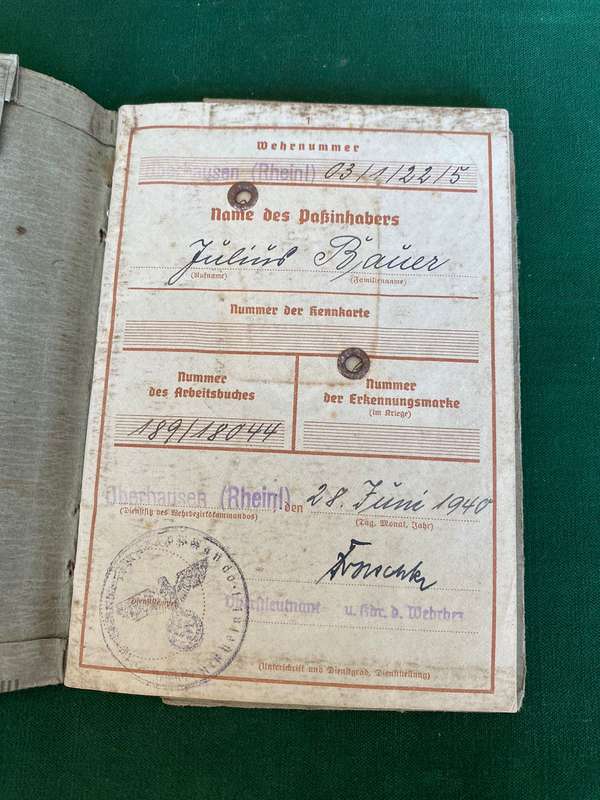 1
Wehrnummer
Oberhausen (Rheinl) 03/1/22/5
Name des Paßinhabers
Julius Bauer
(Rufname) (Familienname)
Nummer der Kennkarte
Nummer
des Arbeitsbuches
189/18044
Nummer
der Erkennungsmarke
(im Kriege)
Oberhausen (Rheinl) den 28. Juni 1940
(Dienstsitz des Wehrbezirkskommandos) (Tag, Monat, Jahr)
Dienststempel
Oberstleutnant u. Kdr. d. Wehrbez
(Unterschrift und Dienstgrad, Dienststellung)